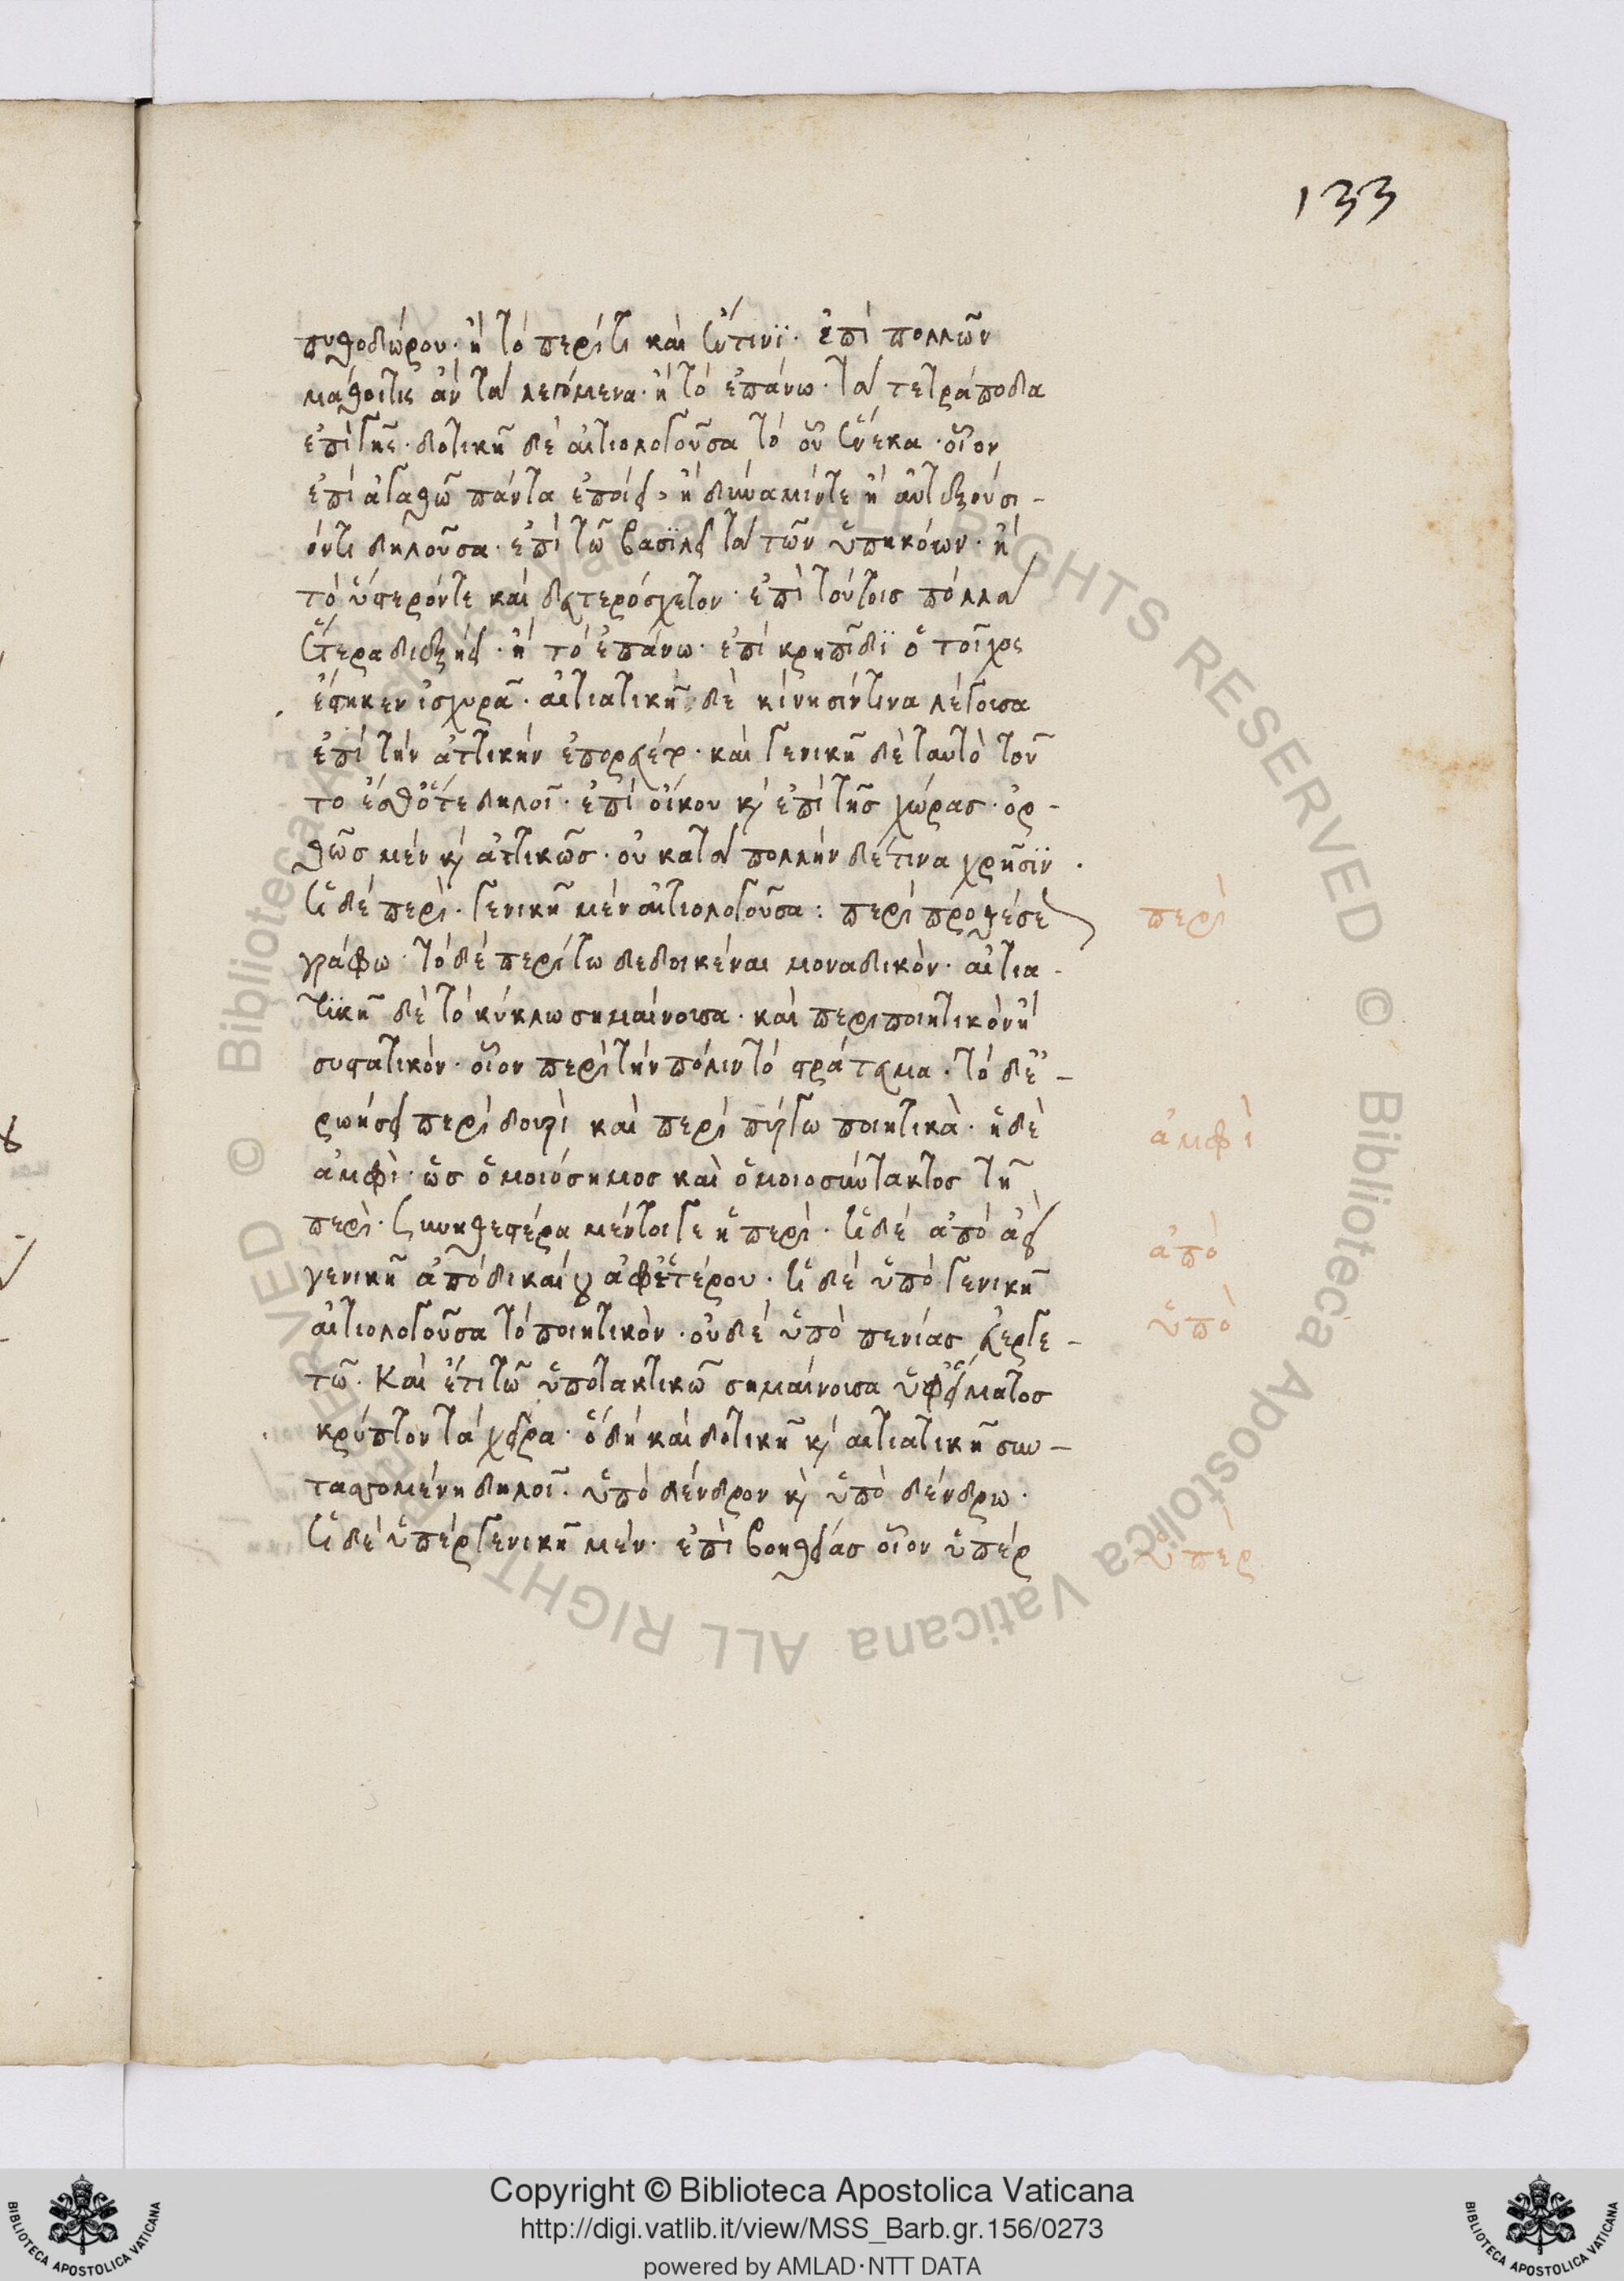 133
πυθοδώρου· ἢ τὸ περί τι καὶ ἔν τινϊ· ἐπὶ πολλῶν
μάθοι τις ἂν τὰ λεγόμενα· ἢ τὸ ἐπάνω· τὰ τετράποδα
ἐπὶ γῆς· δοτικῆ δὲ αἰτιολογοῦσα τὸ οὗ ἕνεκα· οἷον
ἐπὶ ἀγαθῶ πάντα ἐποίει· ἢ δύναμίν τε ἢ ἀντεξούσι-
όν τι δηλοῦσα· ἐπὶ τῶ βασϊλεῖ τὰ τῶν ὑπηκόων· ἢ
τὸ ὕστερόν τε καὶ δευτερόσχετον· ἐπὶ τούτοις πολλὰ
ἕτερα διεξήει· ἢ τὸ ἐπάνω· ἐπὶ κρηπῖδϊ ὁ τοῖχος
ἕστηκεν ἰσχυρᾶ· αἰτιατικῆ δὲ κίνησίν τινα λέγουσα
ἐπὶ τὴν ἀττικὴν ἐπορεύετο· καὶ γενικῆ δὲ ταυτὸ τοῦ
το ἔσθ ὅτε δηλοῖ· ἐπὶ οἴκου κ ἐπὶ τῆς χώρας· ὀρ-
θῶς μὲν κ ἀττικῶς· οὐ κατὰ πολλὴν δέ τινα χρῆσϊν·
ἡ δὲ περὶ· γενικῆ μὲν αἰτιολογοῦσα: περὶ προθέσεων
γράφω· τὸ δὲ περὶ τω δεδοικέναι μοναδικὸν· αἰτια-
τϊκῆ δὲ τὸ κύκλω σημαίνουσα· καὶ περιποιητικὸν ἢ
συστατικόν· οἷον περὶ τὴν πόλιν τὸ στράτευμα· τὸ δὲ-
περὶ δουρὶ καὶ περὶ ποιητικὰ· ἡ δὲ
ἀμφὶ· ὡς ὁμοιόσημος καὶ ὁμοιοσύντακτος τῆ
περὶ· συνηθεστέρα μέντοιγε ἡ περὶ· ἡ δὲ ἀπὸ ἀεὶ
γενικῆ ἀπὸ δικαίου ἀφ ἑτέρου· ἡ δὲ ὑπὸ γενικῆ
αἰτιολογοῦσα τὸ ποιητικὸν· οὐδὲ ὑπὸ πενίας
τῶ· Καὶ ἔτι τῶ ὑποτακτικῶ σημαίνουσα ὑφ εἵματος
κρύπτον τὰ χεῖρα· ὃ δὴ καὶ δοτικῆ κ αἰτιατικῆ συν-
ταττομένη δηλοῖ· ὑπὸ δένδρον κ ὑπὸ δένδρω·
ἡ δὲ ὑπὲρ γενικῆ μέν· ἐπὶ βοηθείας οἷον ὑπὲρ
περὶ
ἀμφὶ
ἀπὸ
ὑπὸ
ὑπὲρ
Copyright © Biblioteca Apostolica Vaticana
http://digi.vatlib.it/view/MSS_Barb.gr.156/0273
powered by AMLAD·NTT DATA